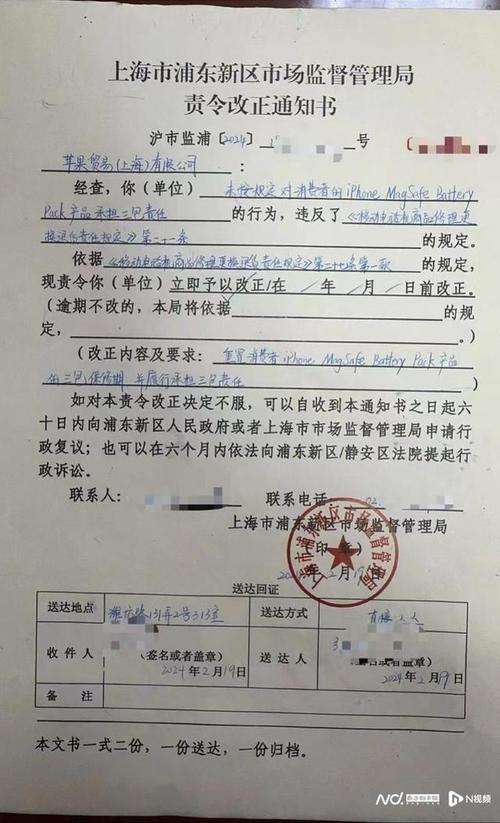 上海市浦东新区市场监督管理局
责令改正通知书
沪市监浦〔2024〕 号
苹果贸易(上海)有限公司:
经查,你(单位) 未按规定对消费者的iPhone MagSafe Battery
Pack产品承担三包责任 的行为,违反了《移动电话机商品修理更
换退货责任规定》第二十一条 的规定。
依据《移动电话机商品修理更换退货责任规定》第二十七条第一款,
现责令你(单位)立即予以改正/在 年 月 日前改正。
(逾期不改的,本局将依据 的规
定, 。)
(改正内容及要求: 重置消费者iPhone MagSafe Battery Pack产品
的三包保修期,并履行承担三包责任 )
如对本责令改正决定不服,可以自收到本通知书之日起六
十日内向浦东新区人民政府或者上海市市场监督管理局申请行
政复议;也可以在六个月内依法向浦东新区/静安区法院提起行
政诉讼。
联系人: 联系电话: 02
上海市浦东新区市场监督管理局
(印章)
2月19日
上海市浦东新区市场监督管理局
送达回证
送达地点 131弄2号313室 送达方式 直接
收件人 (签名或者盖章) 2024年2月19日 送达人 (签名或者盖章) 2024年2月19日
备注
本文书一式二份,一份送达,一份归档。
N视频